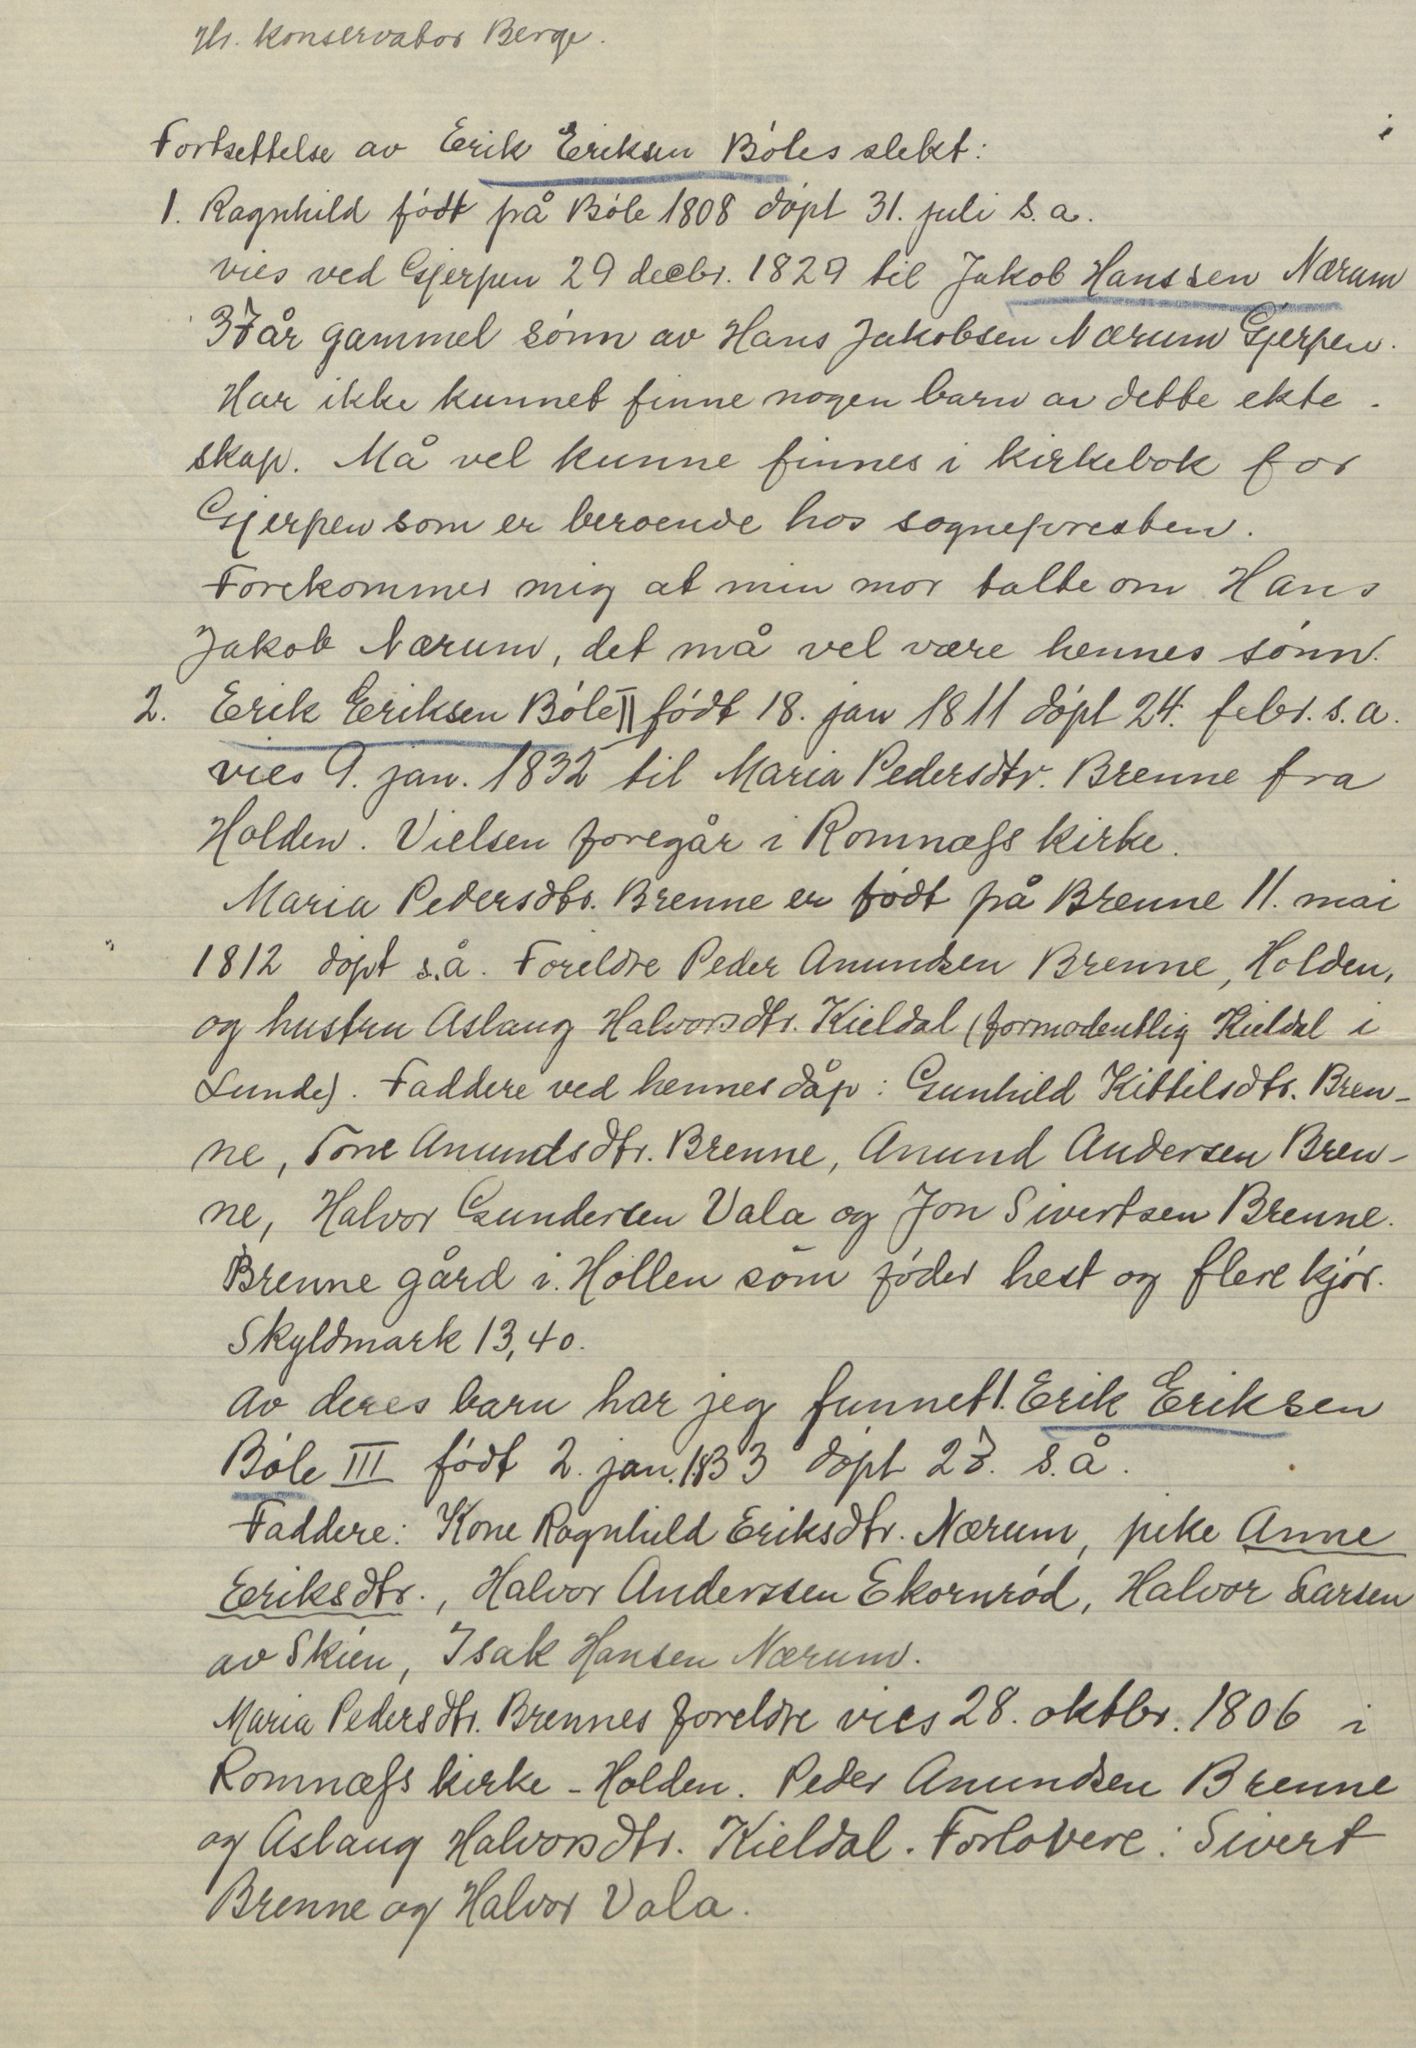 Hr. Konservator Berge.
Fortsettelse av Erik Eriksen Bóles slekt:
1. Ragnhild født på Bóle 1808 dópt 31. juli s.a.
vies ved Gjerpen 29 decbr. 1829 til Jakob Hanssen Nærum
37 år gammel sónn av Hans Jakobsen Nærum Gjerpen.
Har ikke kunnet finne nogen barn av dette ekte-
skap. Må vel kunne finnes i kirkebok for
Gjerpen som er beroende hos sognepresten.
Forekommer mig at min mor talte om Hans
Jakob Nærum, det må vel være hennes sónn.
2. Erik Eriksen Bóle II født 18. jan 1811 dópt 24. febr. s.a.
vies 9. jan. 1832 til Maria Pedersdtr. Brenne fra
Holden. Vielsen foregår i Romnæss kirke.
Maria Pedersdtr. Brenne er født på Brenne 11. mai
1812 dópt s.å. Foreldre Peder Anundsen Brenne, Holden,
og hustru Aslaug Halvorsdtr. Kieldal (formodentlig Kieldal i
Lunde). Faddere ved hennes dåp: Gunhild Kittilsdtr. Bren-
ne, Tone Anundsdtr. Brenne, Anund Andersen Bren-
ne, Halvor Gundersen Vala og Jon Sivertsen Brenne.
Brenne gård i Hollen som fóder hest og flere kjór.
Skyldmark 13,40.
Av deres barn har jeg funnet 1. Erik Eriksen
Bóle III født 2. jan. 1833 dópt 27. s.å.
Faddere: Kone Ragnhild Eriksdtr. Nærum, pike Anne
Eriksdtr., Halvor Anderssen Ekornród, Halvor Larsen
av Skien, Isak Hansen Nærum.
Maria Pedersdtr. Brennes foreldre vies 28. oktbr. 1806 i
Romnæss kirke - Holden. Peder Anundsen Brenne
og Aslaug Halvorsdtr. Kieldal. Forlovere: Sivert
Brenne og Halvor Vala.